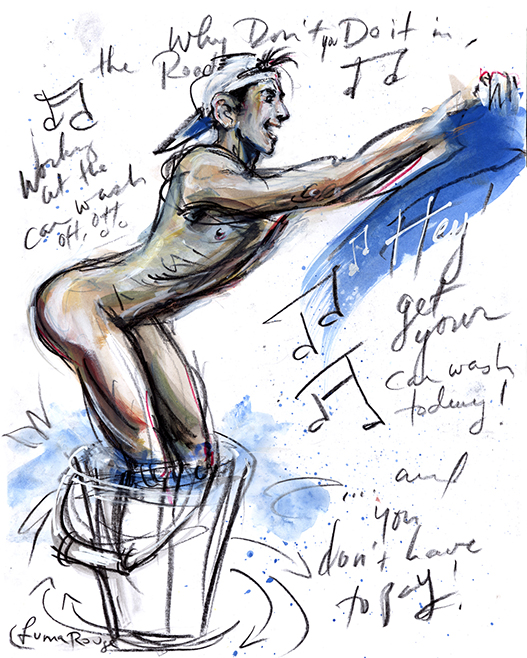 Why Don't you Do it in
the Road
Working
at the
car wash
off, off, ...
Hey!
get
your
car wash
today!
... and
you
don't have
to pay!
fumaRouge